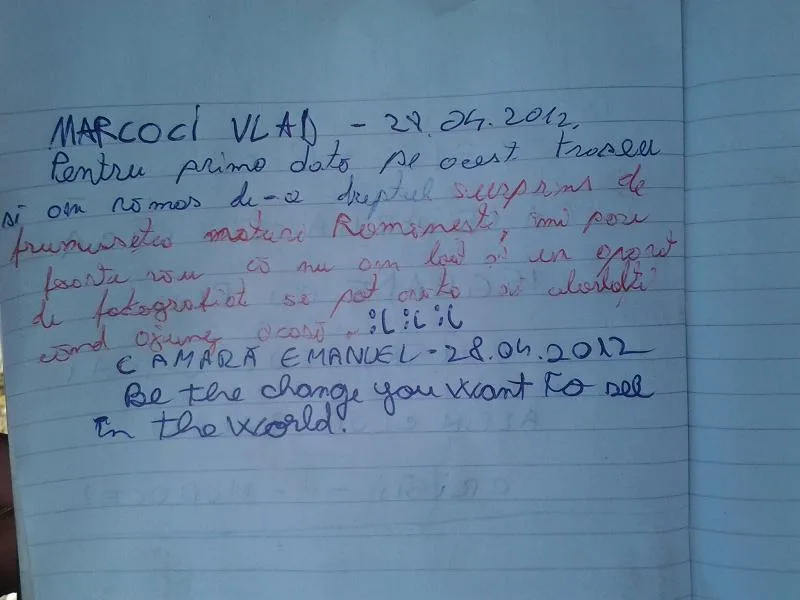 MARCOCI VLAD - 28.04.2012.
Pentru prima data pe acest traseu
si am ramas de-a dreptul surprins de
frumusetea naturi Romanesti, imi pare
foarte rau ca nu am luat si un aparat
de fotografiat sa pot arata si celorlalti
cand ajung acasa. :( :( :(
CAMARĂ EMANUEL - 28.04.2012
Be the change you want to see
in the world.